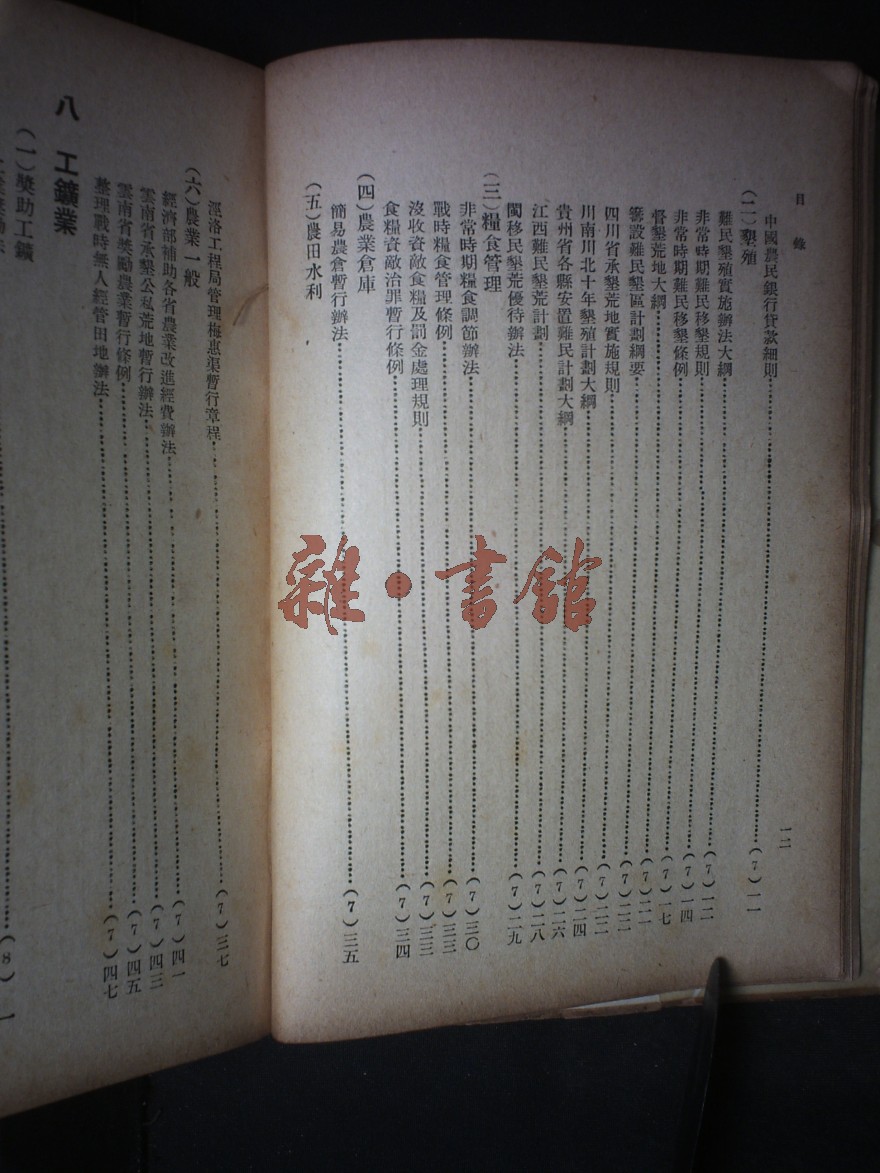 目錄
一二
中國農民銀行貸款細則……(7)一一
(二)墾殖
難民墾殖實施辦法大綱……(7)一二
非常時期難民移墾規則……(7)一四
非常時期難民移墾條例……(7)一七
督墾荒地大綱……(7)二一
籌設難民墾區計劃綱要……(7)二二
四川省承墾荒地實施規則……(7)二三
川南川北十年墾殖計劃大綱……(7)二四
貴州省各縣安置難民計劃大綱……(7)二六
江西難民墾荒計劃……(7)二八
閩移民墾荒優待辦法……(7)二九
(三)糧食管理
非常時期糧食調節辦法……(7)三〇
戰時糧食管理條例……(7)三二
沒收資敵食糧及罰金處理規則……(7)三三
食糧資敵治罪暫行條例……(7)三四
(四)農業倉庫
簡易農倉暫行辦法……(7)三五
(五)農田水利
涇洛工程局管理梅惠渠暫行章程……(7)三七
(六)農業一般
經濟部補助各省農業改進經費辦法……(7)四一
雲南省承墾公私荒地暫行辦法……(7)四三
雲南省獎勵農業暫行條例……(7)四五
整理戰時無人經管田地辦法……(7)四七
八 工鑛業
(一)獎助工鑛
……(8)一
雜·書館